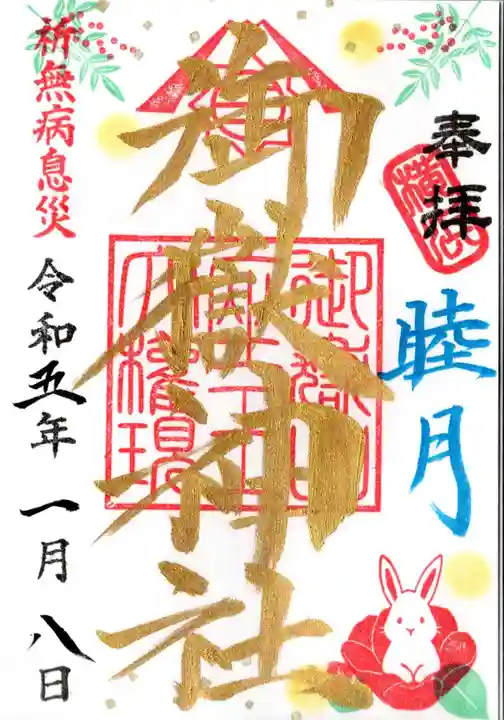 奉拝
睦月
御嶽神社
御嶽山
大権現
祈無病息災
令和五年 一月 八日